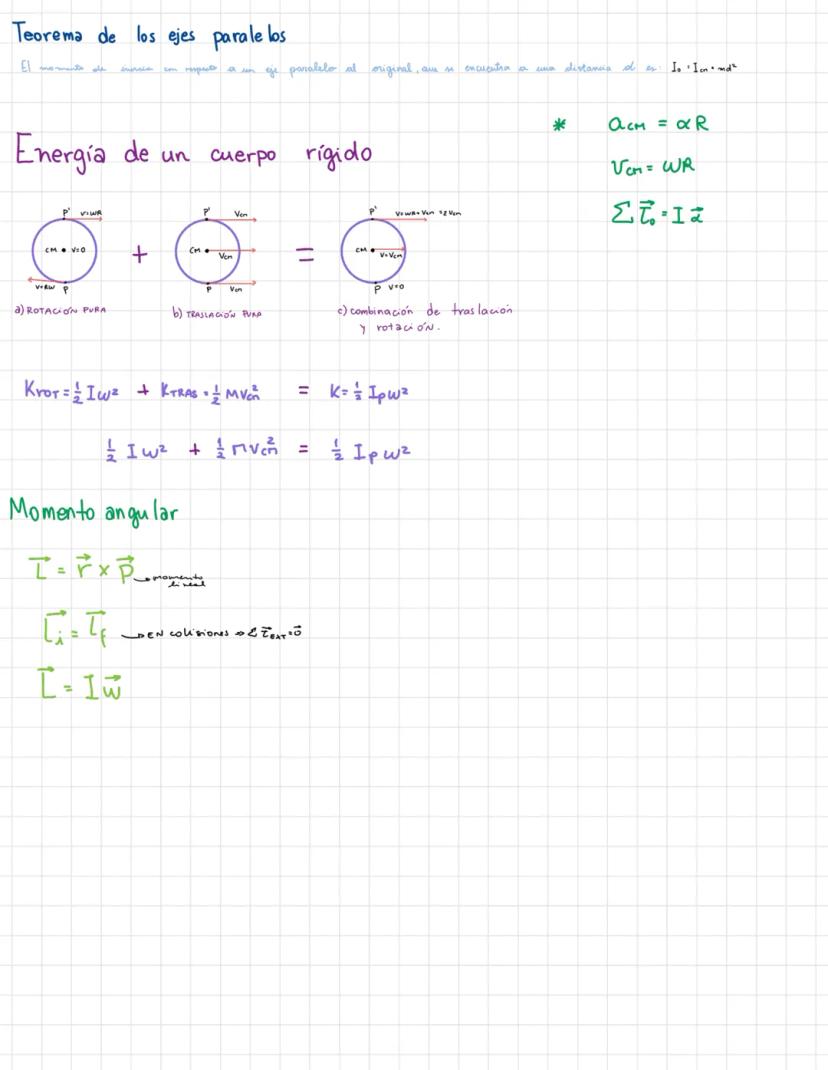 Teorema de los ejes paralelos
El momento de inercia con respecto a un eje paralelo al original, que se encuentra a una distancia d es: I₀ = Icm + md²
* acm = αR
Energía de un cuerpo rígido
Vcm = WR
Σ τ⃗₀ = I α⃗
P' V=WR
CM V=0
V=RW P
+
P' Vcm
CM Vcm
P Vcm
=
P' V=WR+Vcm =2Vcm
CM V=Vcm
P V=0
a) ROTACIÓN PURA
b) TRASLACIÓN PURA
c) combinación de traslación
y rotación.
KROT = ½ Iω² + KTRAS = ½ MVcm² = K = ½ Ipω²
½ Iω² + ½ MVcm² = ½ Ipω²
Momento angular
L⃗ = r⃗ × p⃗ → momento
lineal
L⃗i = L⃗f → EN colisiones ⇒ Σ τ⃗EXT = 0⃗
L⃗ = I ω⃗